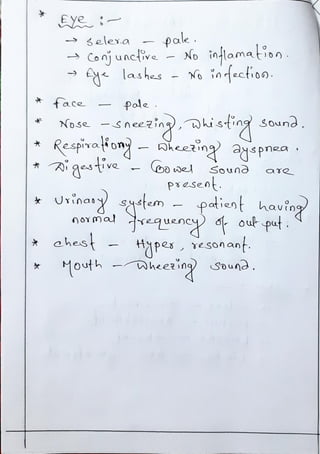 * Eye :-
→ Selera - pale.
→ Conjunctive - No inflamation.
→ Eye lashes - No infection.
* Face - pale.
* Nose - sneezing, whisting sound.
* Respirationy - wheezing dyspnea.
* Digestive - Bowel sound are
present.
* Urinary system - patient having
normal frequency of out put.
* chest - Hyper, resonant.
* Mouth - wheezing sound.